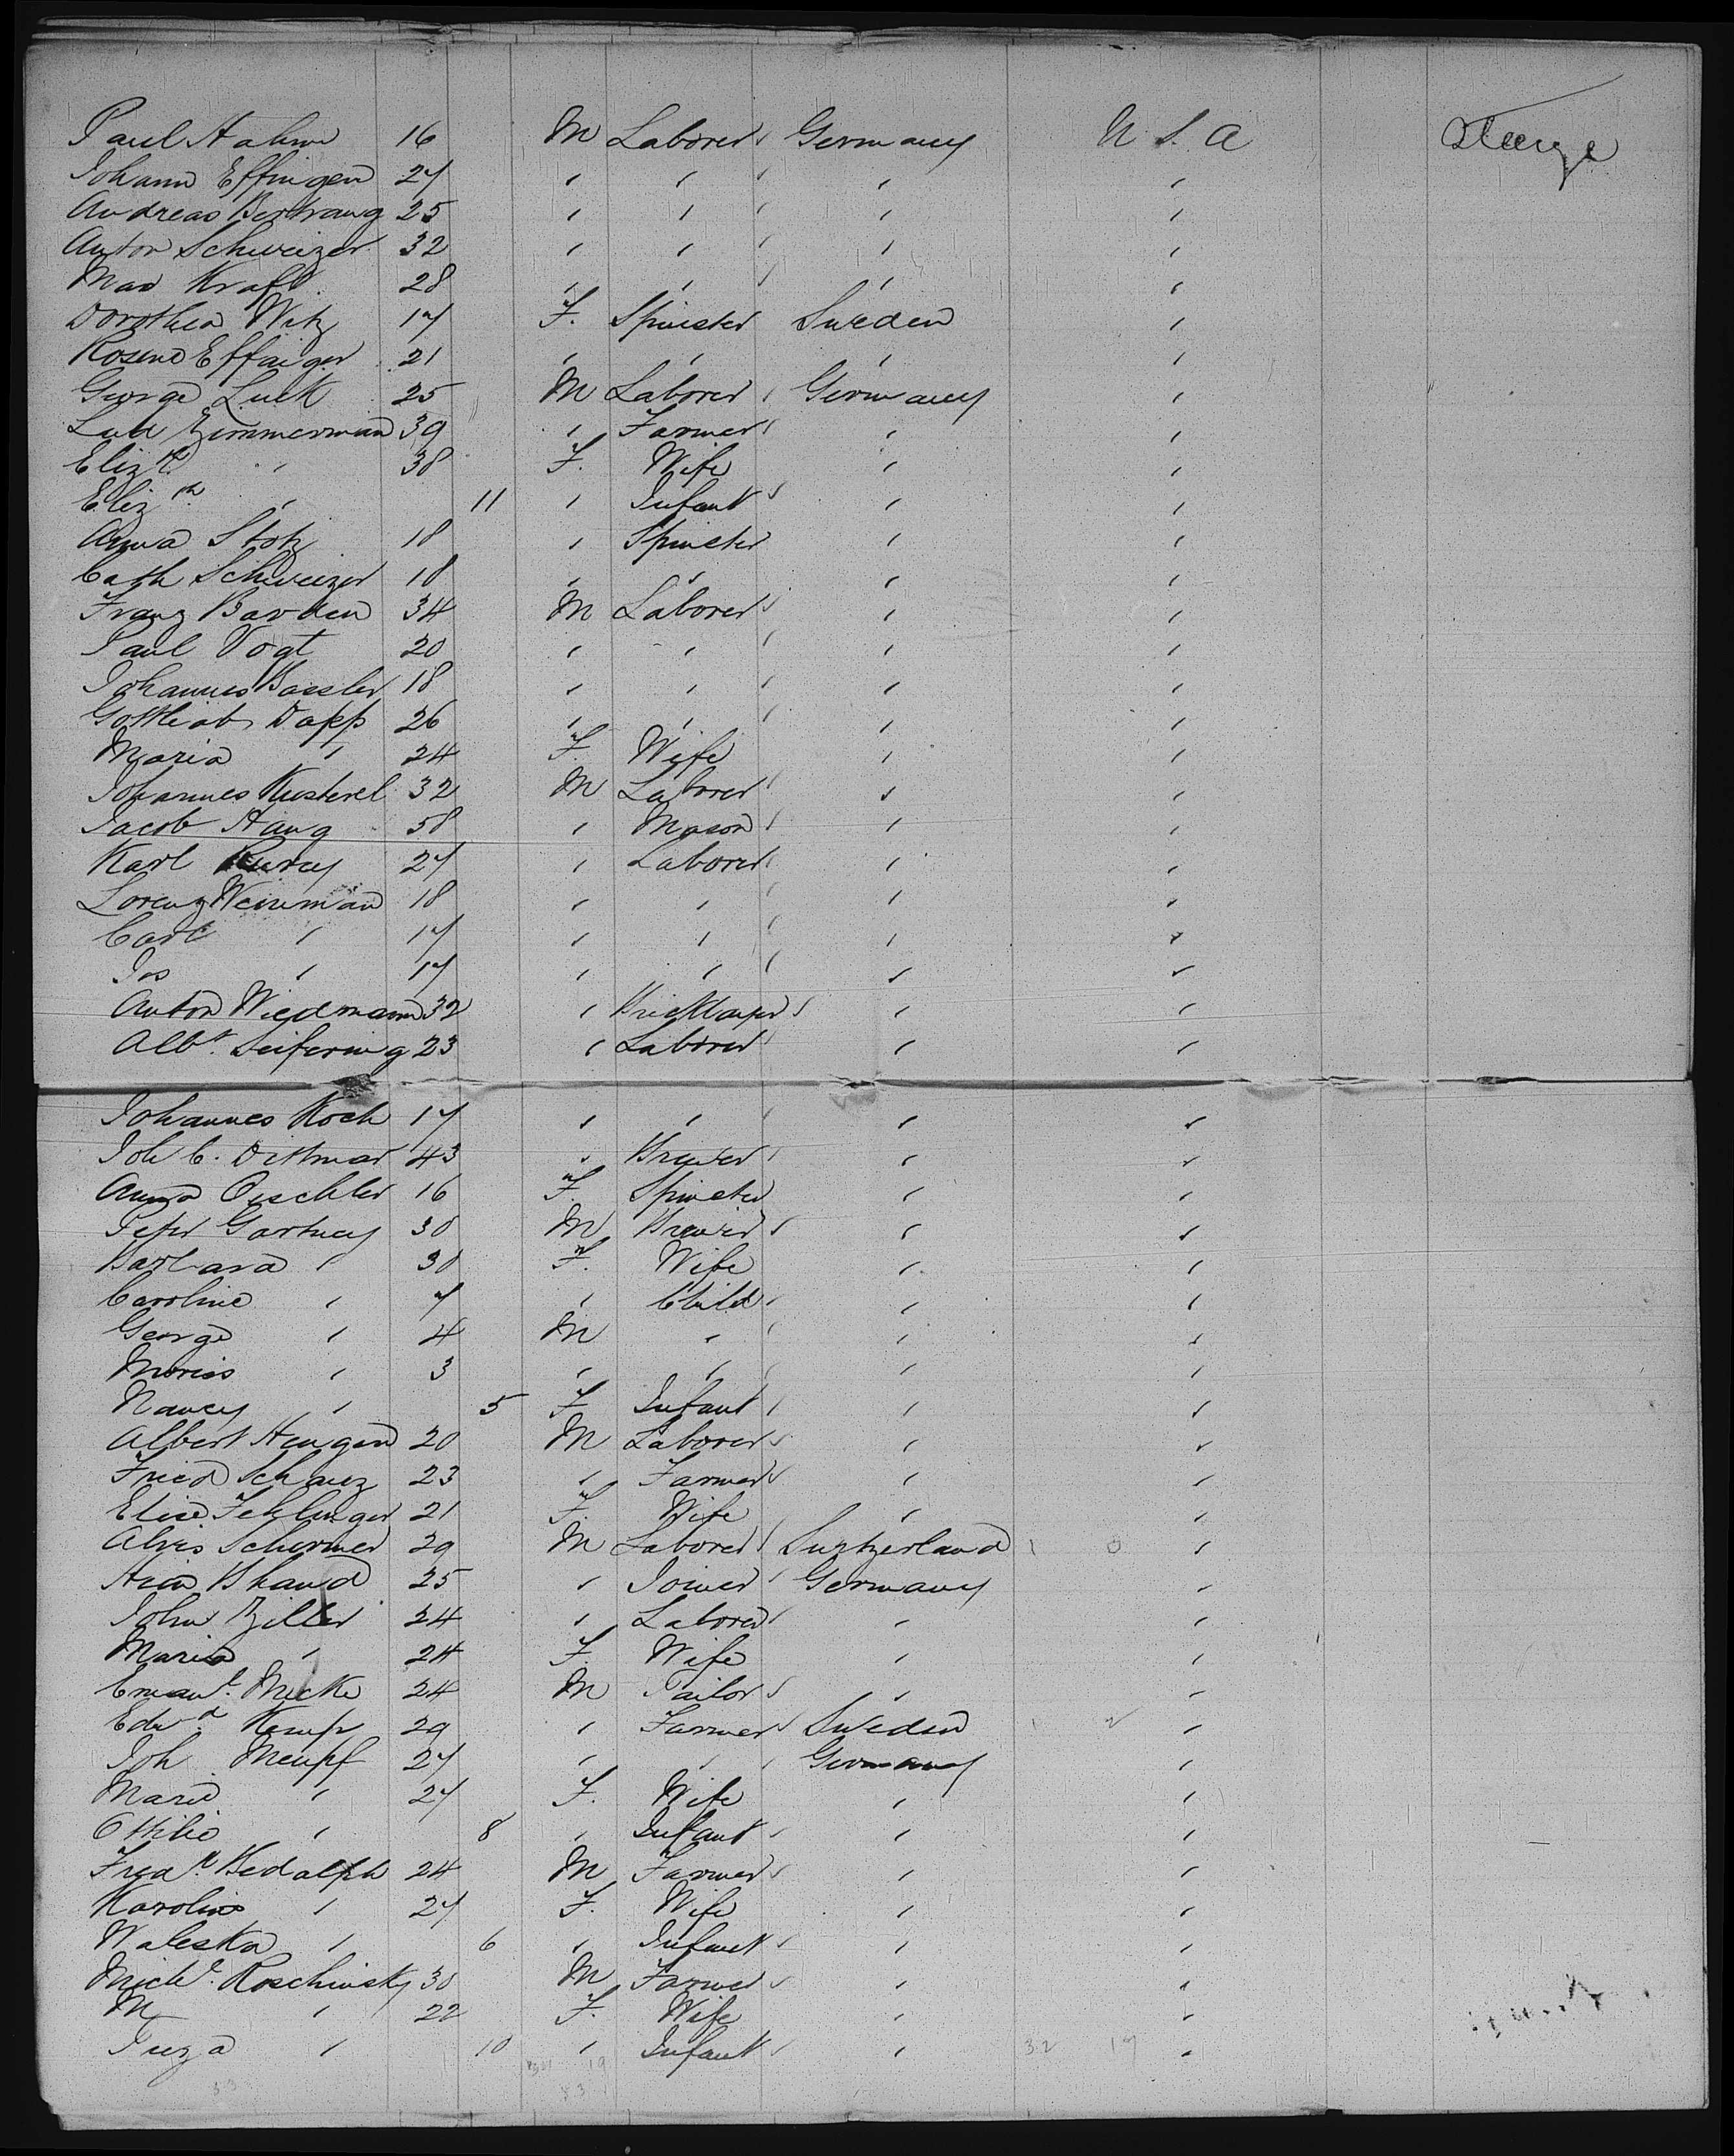 Paul Hahn 16 M Laborer Germany U S. A Steerage
Johann Effingen 27 " " " "
Andreas Bertrang 25 " " " "
Anton Schweizer 32 " " " "
Max Kraft 28 " " " "
Dorothea Witz 17 F. Spinster Sweden "
Rosina Effinger 21 " " " "
George Luck 25 M Laborer Germany "
Lud Zimmerman 39 " Farmer " "
Elizth " 38 F. Wife " "
Elizth " 11 " Infant " "
Anna Stotz 18 " Spinster " "
Cath Schweizer 18 " " " "
Franz Barden 34 M Laborer " "
Paul Vogt 20 " " " "
Johannes Bassler 18 " " " "
Gottliab Dapp 26 " " " "
Maria " 24 F. Wife " "
Johannes Kusterel 32 M Laborer " "
Jacob Haug 58 " Mason " "
Karl 27 " Laborer " "
Lorenz Weinman 18 " " " "
Carl " 17 " " " "
Jos " 17 " " " "
Anton Wiedmann 32 " Bricklayer " "
Albt. Seifering 23 " Laborer " "
Johannes Koch 17 " " " "
Joh C. Dittmar 43 " Brewer " "
Anna Oischler 16 F. Spinster " "
Peter Gartney 30 M Brewer " "
Barbara " 30 F. Wife " "
Caroline " 7 " Child " "
George " 4 M " " "
Moriss " 3 " " " "
Nancy " 5 F Infant " "
Albert Hengen 20 M Laborer " "
Fried Schanz 23 " Farmer " "
Elise Fehlinger 21 F. Wife " "
Alois Schirmer 29 M Laborer Switzerland 1 0 "
Brand 25 " Joiner Germany "
John Ziller 24 " Laborer " "
Maria " 24 F. Wife " "
Emanl. Mucke 24 M Tailor " "
Edwd. Kempf 29 " Farmer Sweden 1 2 "
Joh Menpf 27 " " Germany "
Marie " 27 F. Wife " "
Ottilie " 8 " Infant " "
Fredk. Bedalph 24 M Farmer " "
Karoline " 27 F. Wife " "
Waleska " 6 " Infant " "
Michl. Roschinsky 30 M Farmer " "
M " 22 F. Wife " "
Tuza " 10 " Infant " 32 17 "
33 19